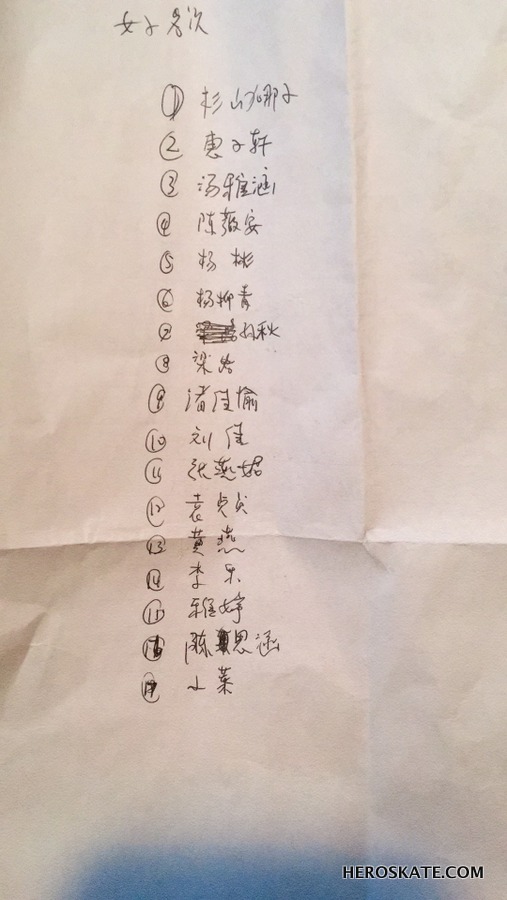 女子名次
① 杉山加娜子
② 惠子轩
③ 汤雅涵
④ 陈薇安
⑤ 杨彬
⑥ 杨柳青
⑦ 秋
⑧ 梁
⑨ 佳愉
⑩ 刘佳
⑪ 张燕妮
⑫ 袁贞贞
⑬ 黄燕
⑭ 李乐
⑮ 雅婷
⑯ 陈思涵
⑰ 小菜
HEROSKATE.COM